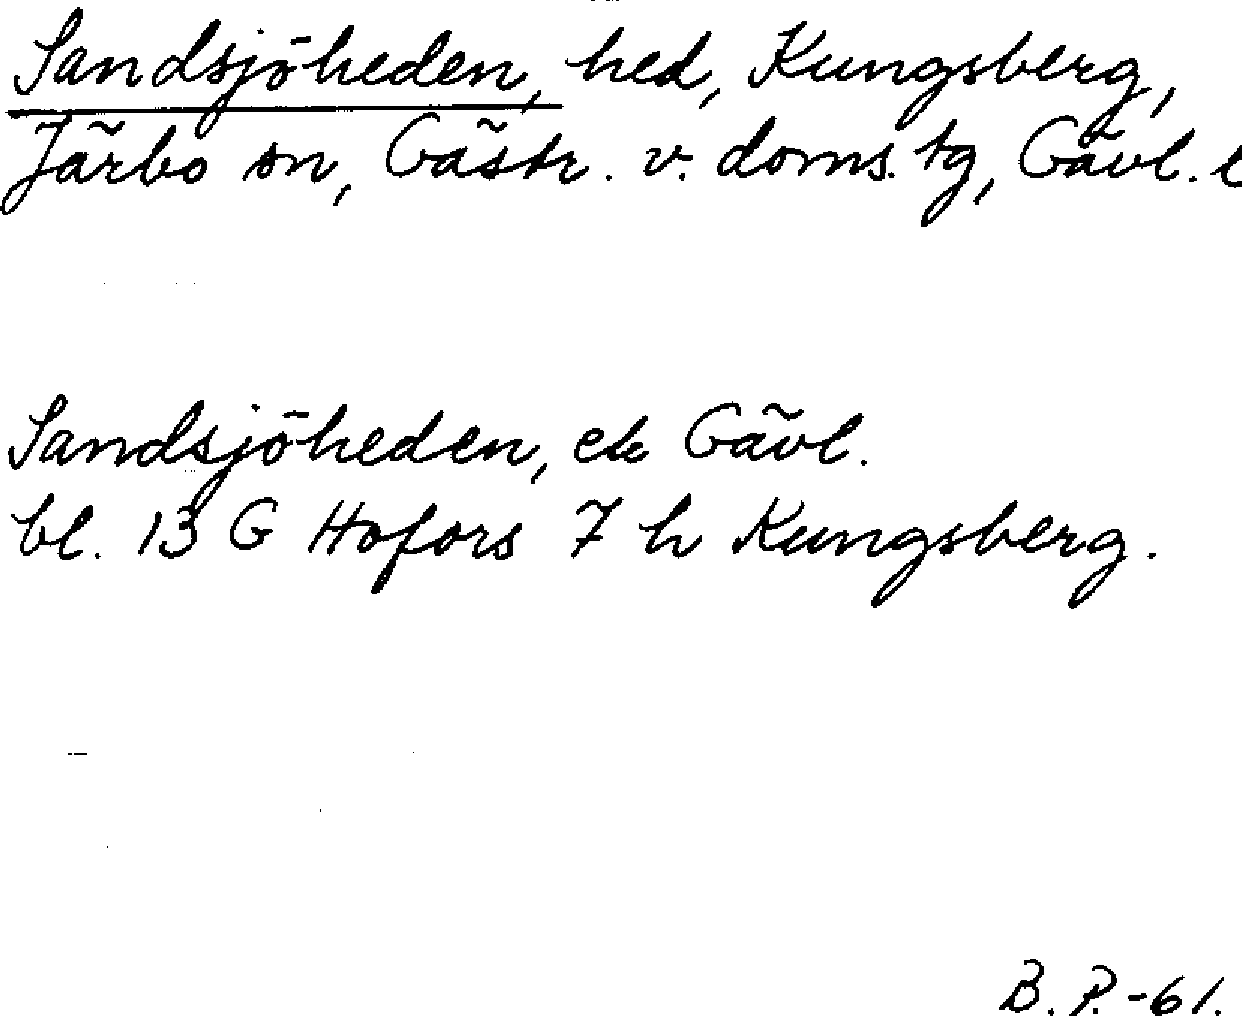 Sandsjöheden, hed, Kungsberg,
Järbo sn, Gästr. v. doms. tg, Gävl. l
Sandsjöheden, ek Gävl.
bl. 13 G Hofors 7 h Kungsberg.
B. P. -61.